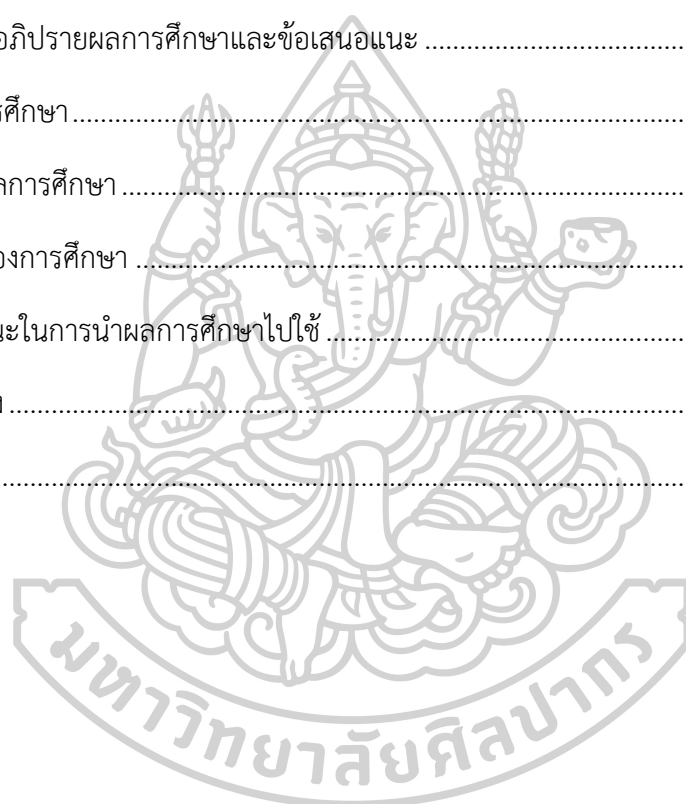 อภิปรายผลการศึกษาและข้อเสนอแนะ ................................
ศึกษา ................................................................
การศึกษา ................................................................
องการศึกษา ................................................................
นะในการนำผลการศึกษาไปใช้ ................................
................................................................
................................................................
มหาวิทยาลัยศิลปากร